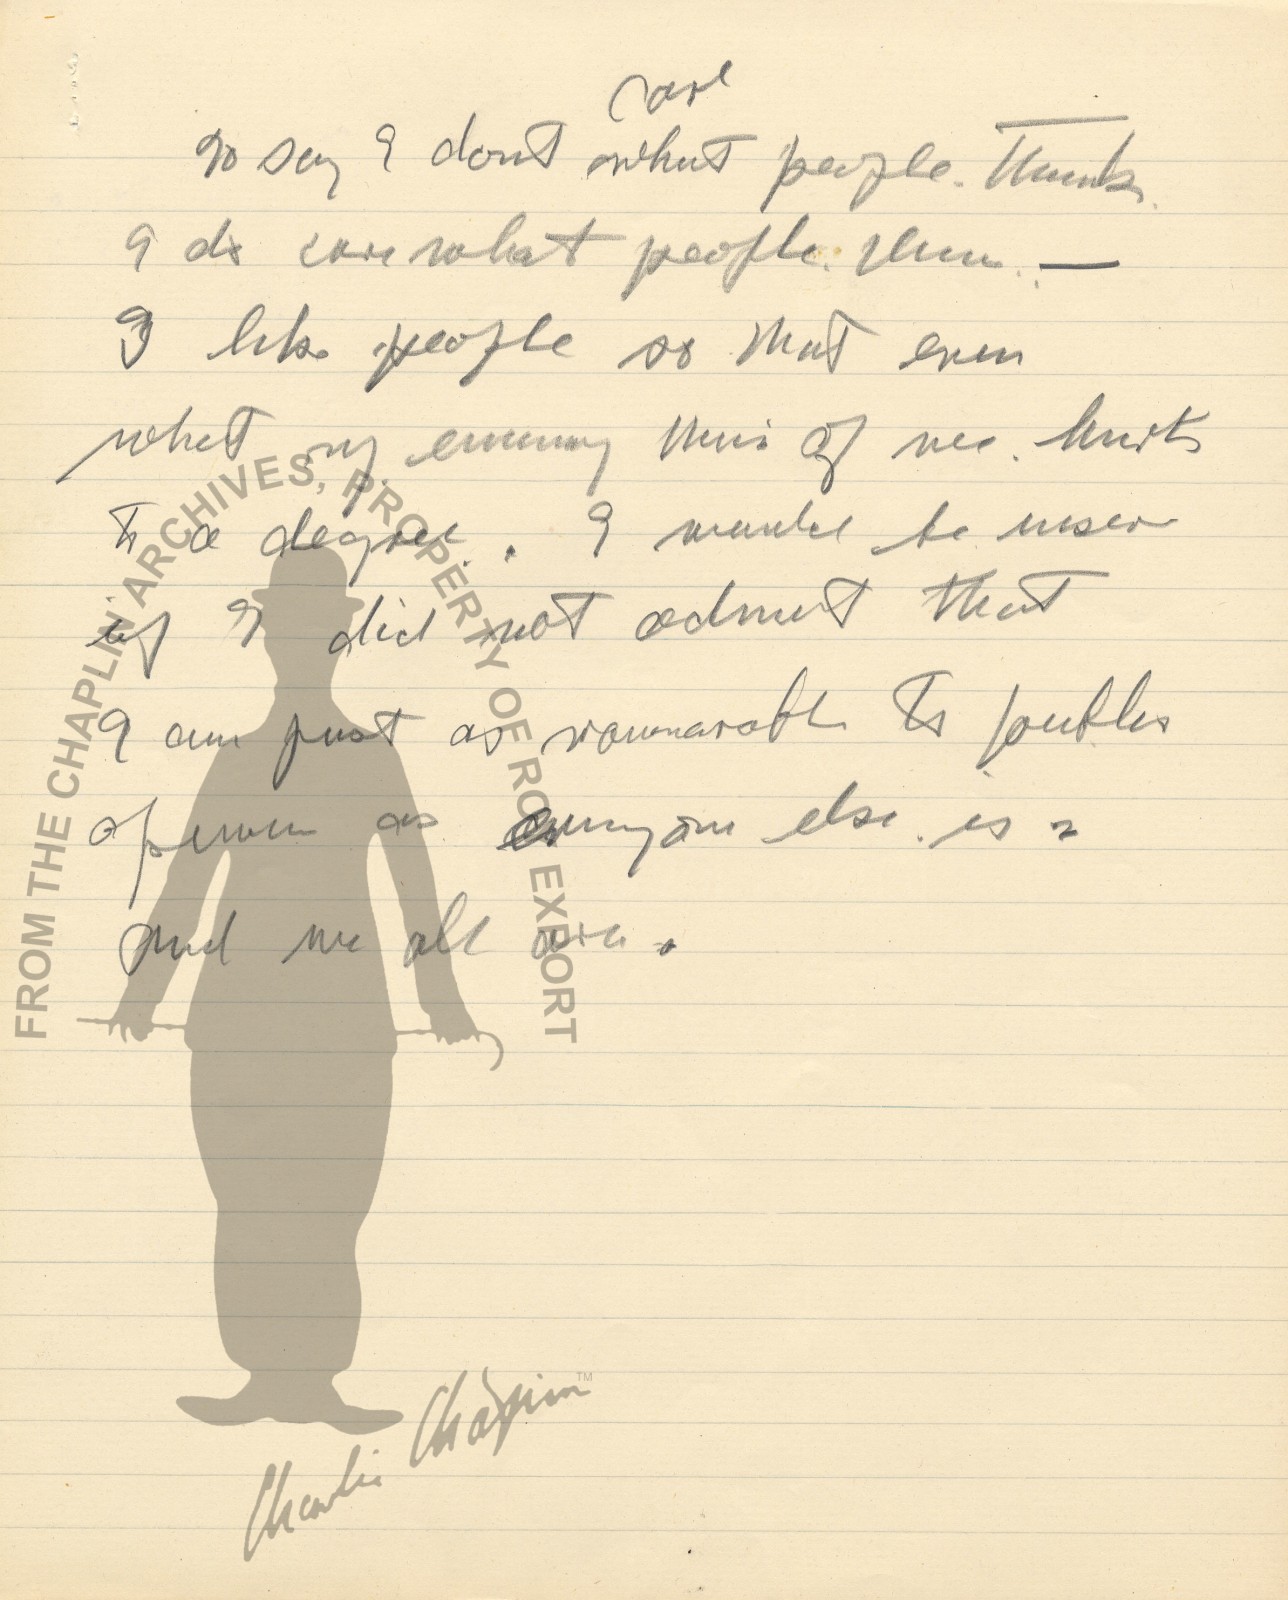 care
to say I dont what people. think.
I do care what people. think. —
I like people so that even
what my enemy thinks of me. hurts
to a degree. I would be
if I did not admit that
I am just as to public
opinion as everyone else. is
and we all are.
FROM THE CHAPLIN ARCHIVES, PROPERTY OF ROY EXPORT
Charlie Chaplin TM